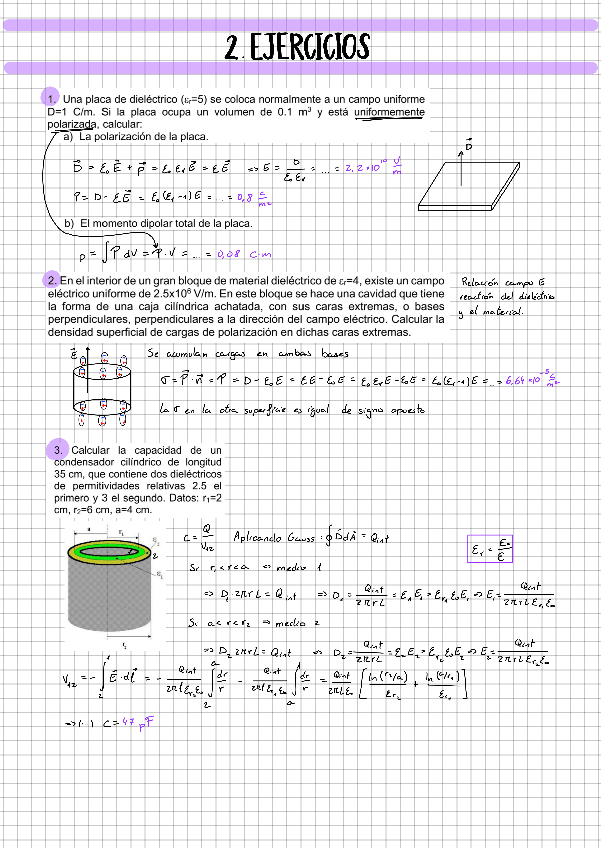 2. EJERCICIOS
1. Una placa de dieléctrico (εr=5) se coloca normalmente a un campo uniforme
D=1 C/m. Si la placa ocupa un volumen de 0.1 m³ y está uniformemente
polarizada, calcular:
a) La polarización de la placa.
D⃗ = ε₀E⃗ + p⃗ = ε₀εrE⃗ = εE⃗ => E = D/(ε₀εr) = ... = 2,2·10¹⁰ V/m
D⃗
P = D - εE⃗ = ε₀(εr-1)E = ... = 0,8 C/m²
b) El momento dipolar total de la placa.
p = ∫P dV = P·V = ... = 0,08 C·m
2. En el interior de un gran bloque de material dieléctrico de εr=4, existe un campo
eléctrico uniforme de 2.5x10⁶ V/m. En este bloque se hace una cavidad que tiene
la forma de una caja cilíndrica achatada, con sus caras extremas, o bases
perpendiculares, perpendiculares a la dirección del campo eléctrico. Calcular la
densidad superficial de cargas de polarización en dichas caras extremas.
Relación campo E
reacción del dieléctrico
y el material.
E⃗
Se acumulan cargas en ambas bases
σ = P⃗·n⃗ = P = D - ε₀E = εE - ε₀E = ε₀εrE - ε₀E = ε₀(εr-1)E = ... = 6,64·10⁻⁵ C/m²
La σ en la otra superficie es igual de signo opuesto
3. Calcular la capacidad de un
condensador cilíndrico de longitud
35 cm, que contiene dos dieléctricos
de permitividades relativas 2.5 el
primero y 3 el segundo. Datos: r₁=2
cm, r₂=6 cm, a=4 cm.
a
r₁
2
r₂
C = Q/V₁₂ Aplicando Gauss: ∮D⃗dA⃗ = Qint
εr = ε₀/ε
Si r₁<r<a => medio 1
=> D₁·2πrL = Qint => D₁ = Qint/(2πrL) = ε₁E₁ = εr₁ε₀E₁ => E₁ = Qint/(2πrLεr₁ε₀)
Si a<r<r₂ => medio 2
=> D₂2πrL = Qint => D₂ = Qint/(2πrL) = ε₂E₂ = εr₂ε₀E₂ => E₂ = Qint/(2πrLεr₂ε₀)
V₁₂ = -∫₂¹ E⃗·dl⃗ = - Qint/(2πLεr₂ε₀) ∫₂ᵃ dr/r - Qint/(2πLεr₁ε₀) ∫ₐ¹ dr/r = Qint/(2πLε₀) [ln(r₂/a)/εr₂ + ln(a/r₁)/εr₁]
C = 47 pF